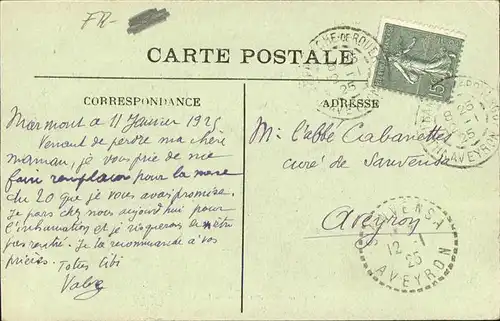 FR-
CARTE POSTALE
CORRESPONDANCE
ADRESSE
Marmont a 11 Janvier 1925
Venant de perdre ma chère
maman, je vous prie de me
faire remplacer pour la messe
du 20 que je vous avais promise.
Je pars chez nous aujourd'hui pour
l'inhumation et je risquerais de n'être
pas rentré. Je la recommande à vos
prières.
Totus tibi
M. l'abbé Cabanettes
curé de Sauvensa
Aveyron
15
12 -1
25
AVEYRON